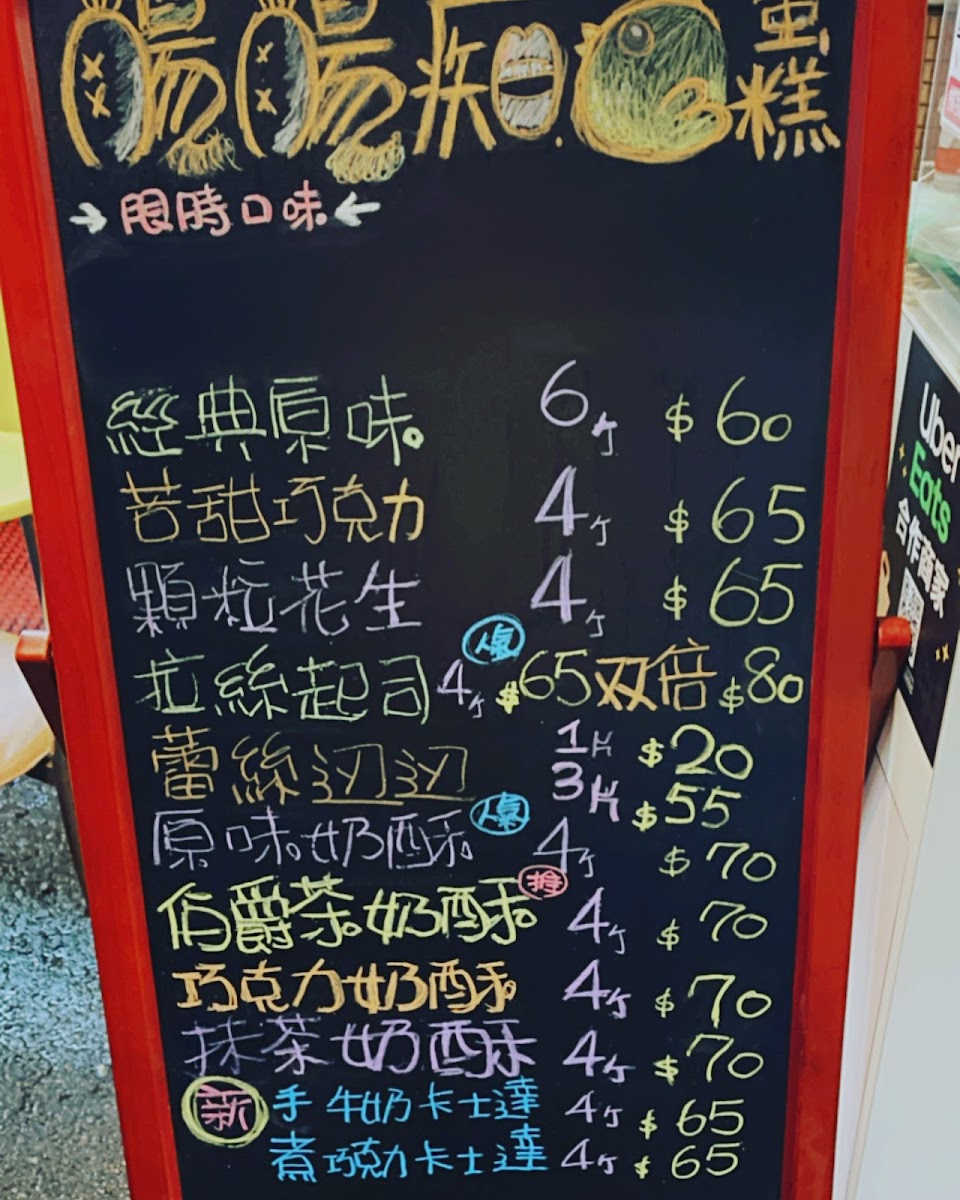 蛋糕
限時口味
經典原味 6ケ $60
苦甜巧克力 4ケ $65
顆粒花生 4ケ $65
人氣
拉絲起司 4ケ $65 双倍 $80
蕾絲 1片 $20
3片 $55
人氣
原味奶酥 4ケ $70
推
伯爵茶奶酥 4ケ $70
巧克力奶酥 4ケ $70
抹茶奶酥 4ケ $70
新 手 牛奶卡士達 4ケ $65
煮 巧克力卡士達 4ケ $65
Uber
Eats
合作商家